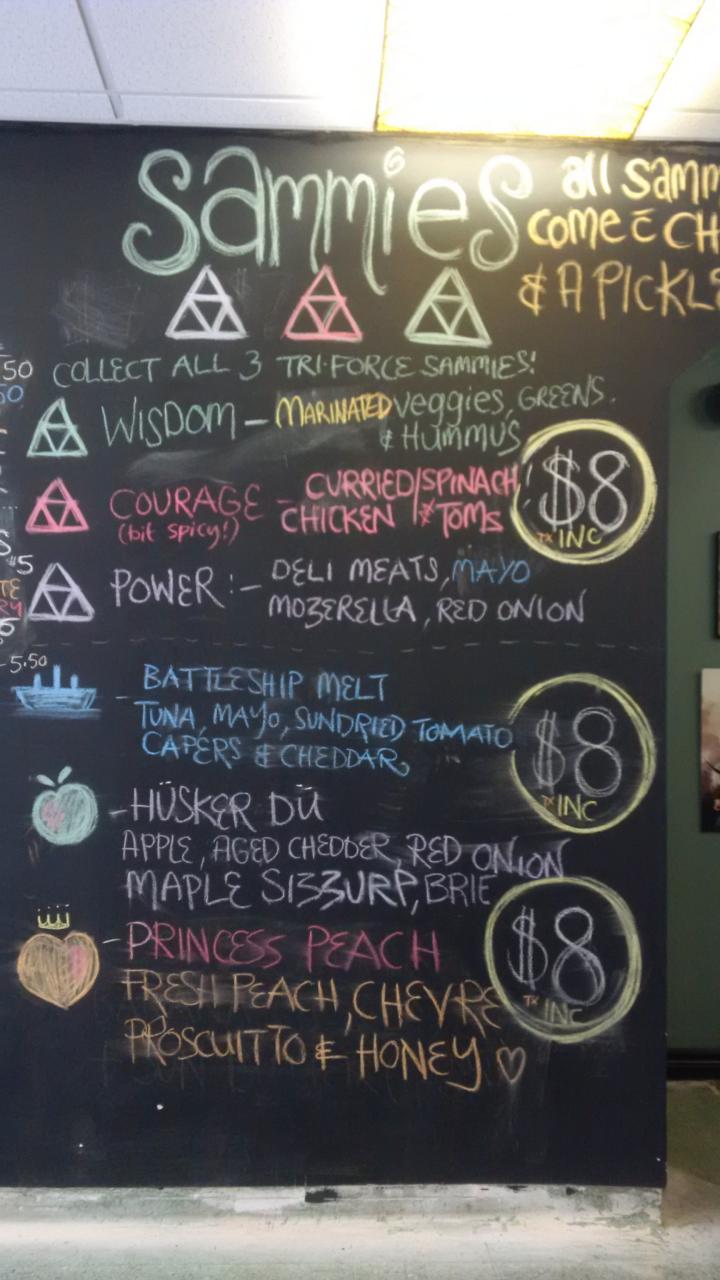 Sammies
all samm
come c̄ CH
& A PICKL
COLLECT ALL 3 TRI·FORCE SAMMIES!
WISDOM – MARINATED veggies, GREENS.
& HUMMUS
$8
TX INC
COURAGE – CURRIED/SPINACH
(bit spicy!) CHICKEN & TOMS
POWER :– DELI MEATS, MAYO
MOZERELLA, RED ONION
– BATTLESHIP MELT
TUNA, MAYO, SUNDRIED TOMATO
CAPERS & CHEDDAR
$8
TX INC
– HÜSKER DÜ
APPLE, AGED CHEDDER, RED ONION
MAPLE SIZZURP, BRIE
$8
TX INC
– PRINCESS PEACH
FRESH PEACH, CHEVRE
PROSCUITTO & HONEY ♡
50
50
$5
TE
RY
5.50